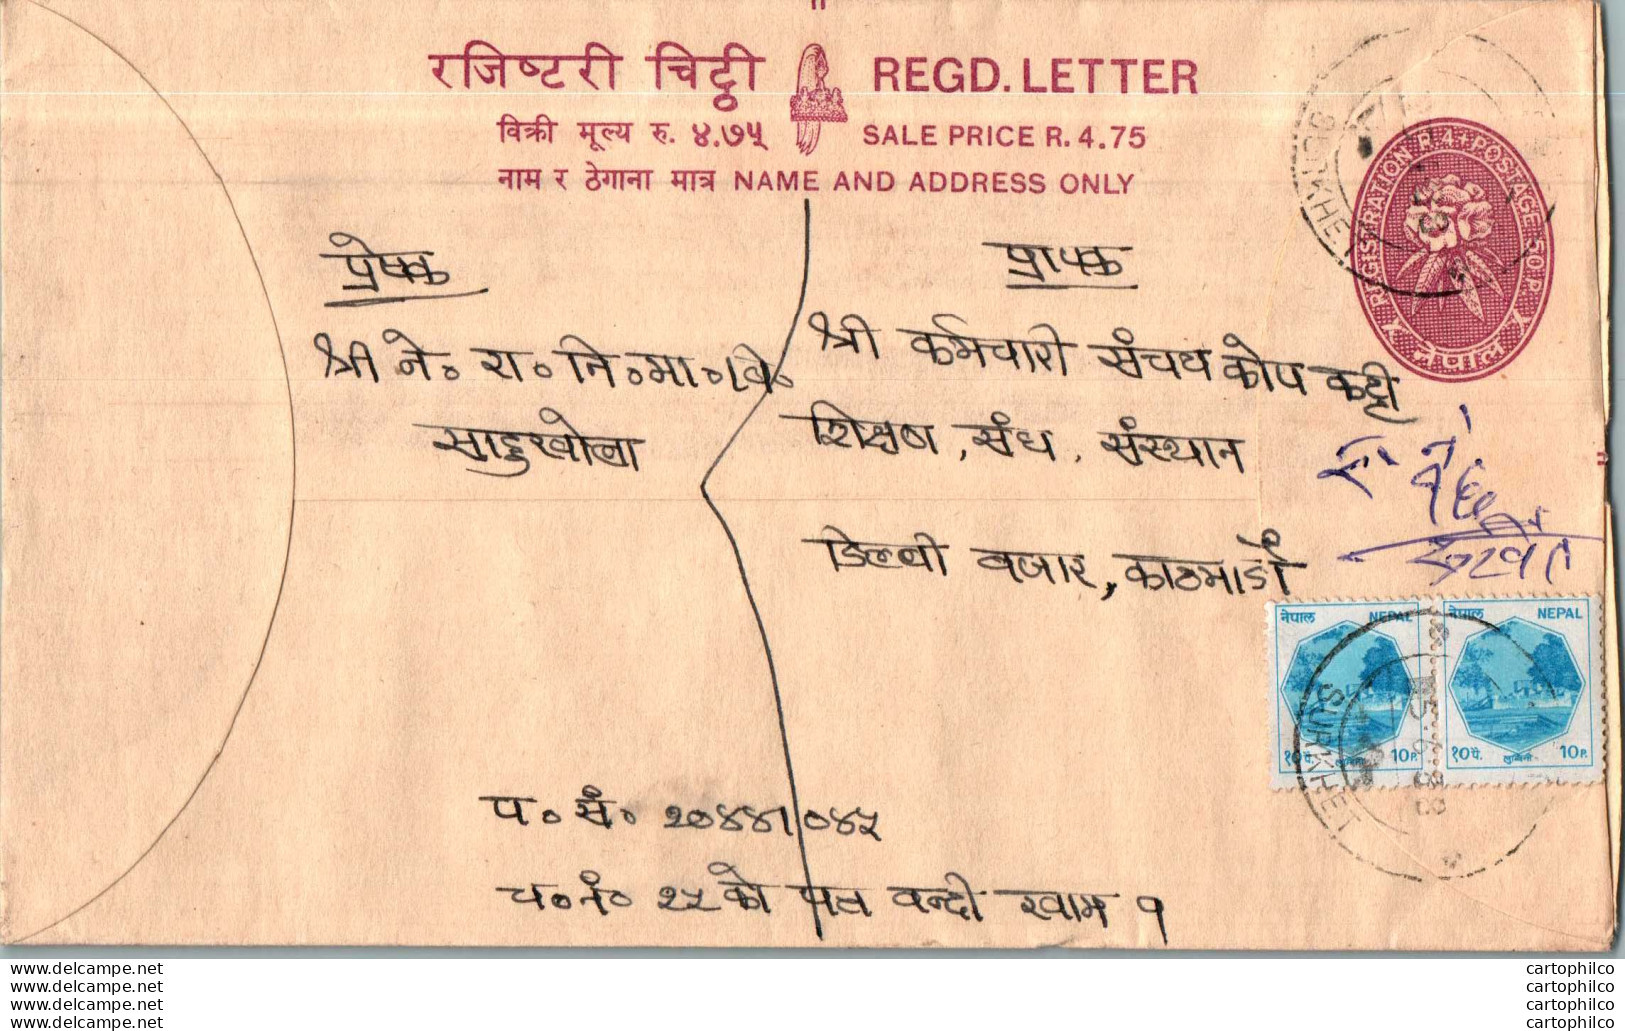 रजिष्टरी चिट्ठी REGD. LETTER
विक्री मूल्य रु. ४.७५ SALE PRICE R. 4.75
नाम र ठेगाना मात्र NAME AND ADDRESS ONLY
REGISTRATION R.4+POSTAGE 50P.
नेपाल
SURKHET
प्रेषक
श्री ने० रा० नि० मा० वि०
साटुखोला
प्रापक
श्री कर्मचारी संचय कोष कट्टी
शिक्षण, संघ, संस्थान
डिल्ली बजार, काठमाडौँ
नेपाल NEPAL
१०पै. लुम्बिनी 10P.
नेपाल NEPAL
१०पै. लुम्बिनी 10P.
SURKHET
15 6 88
प० सं० २०४४।०४५
च० नं० २५ को पत्र बन्दी खाम १
www.delcampe.net
www.delcampe.net
www.delcampe.net
www.delcampe.net
cartophilco
cartophilco
cartophilco
cartophilco